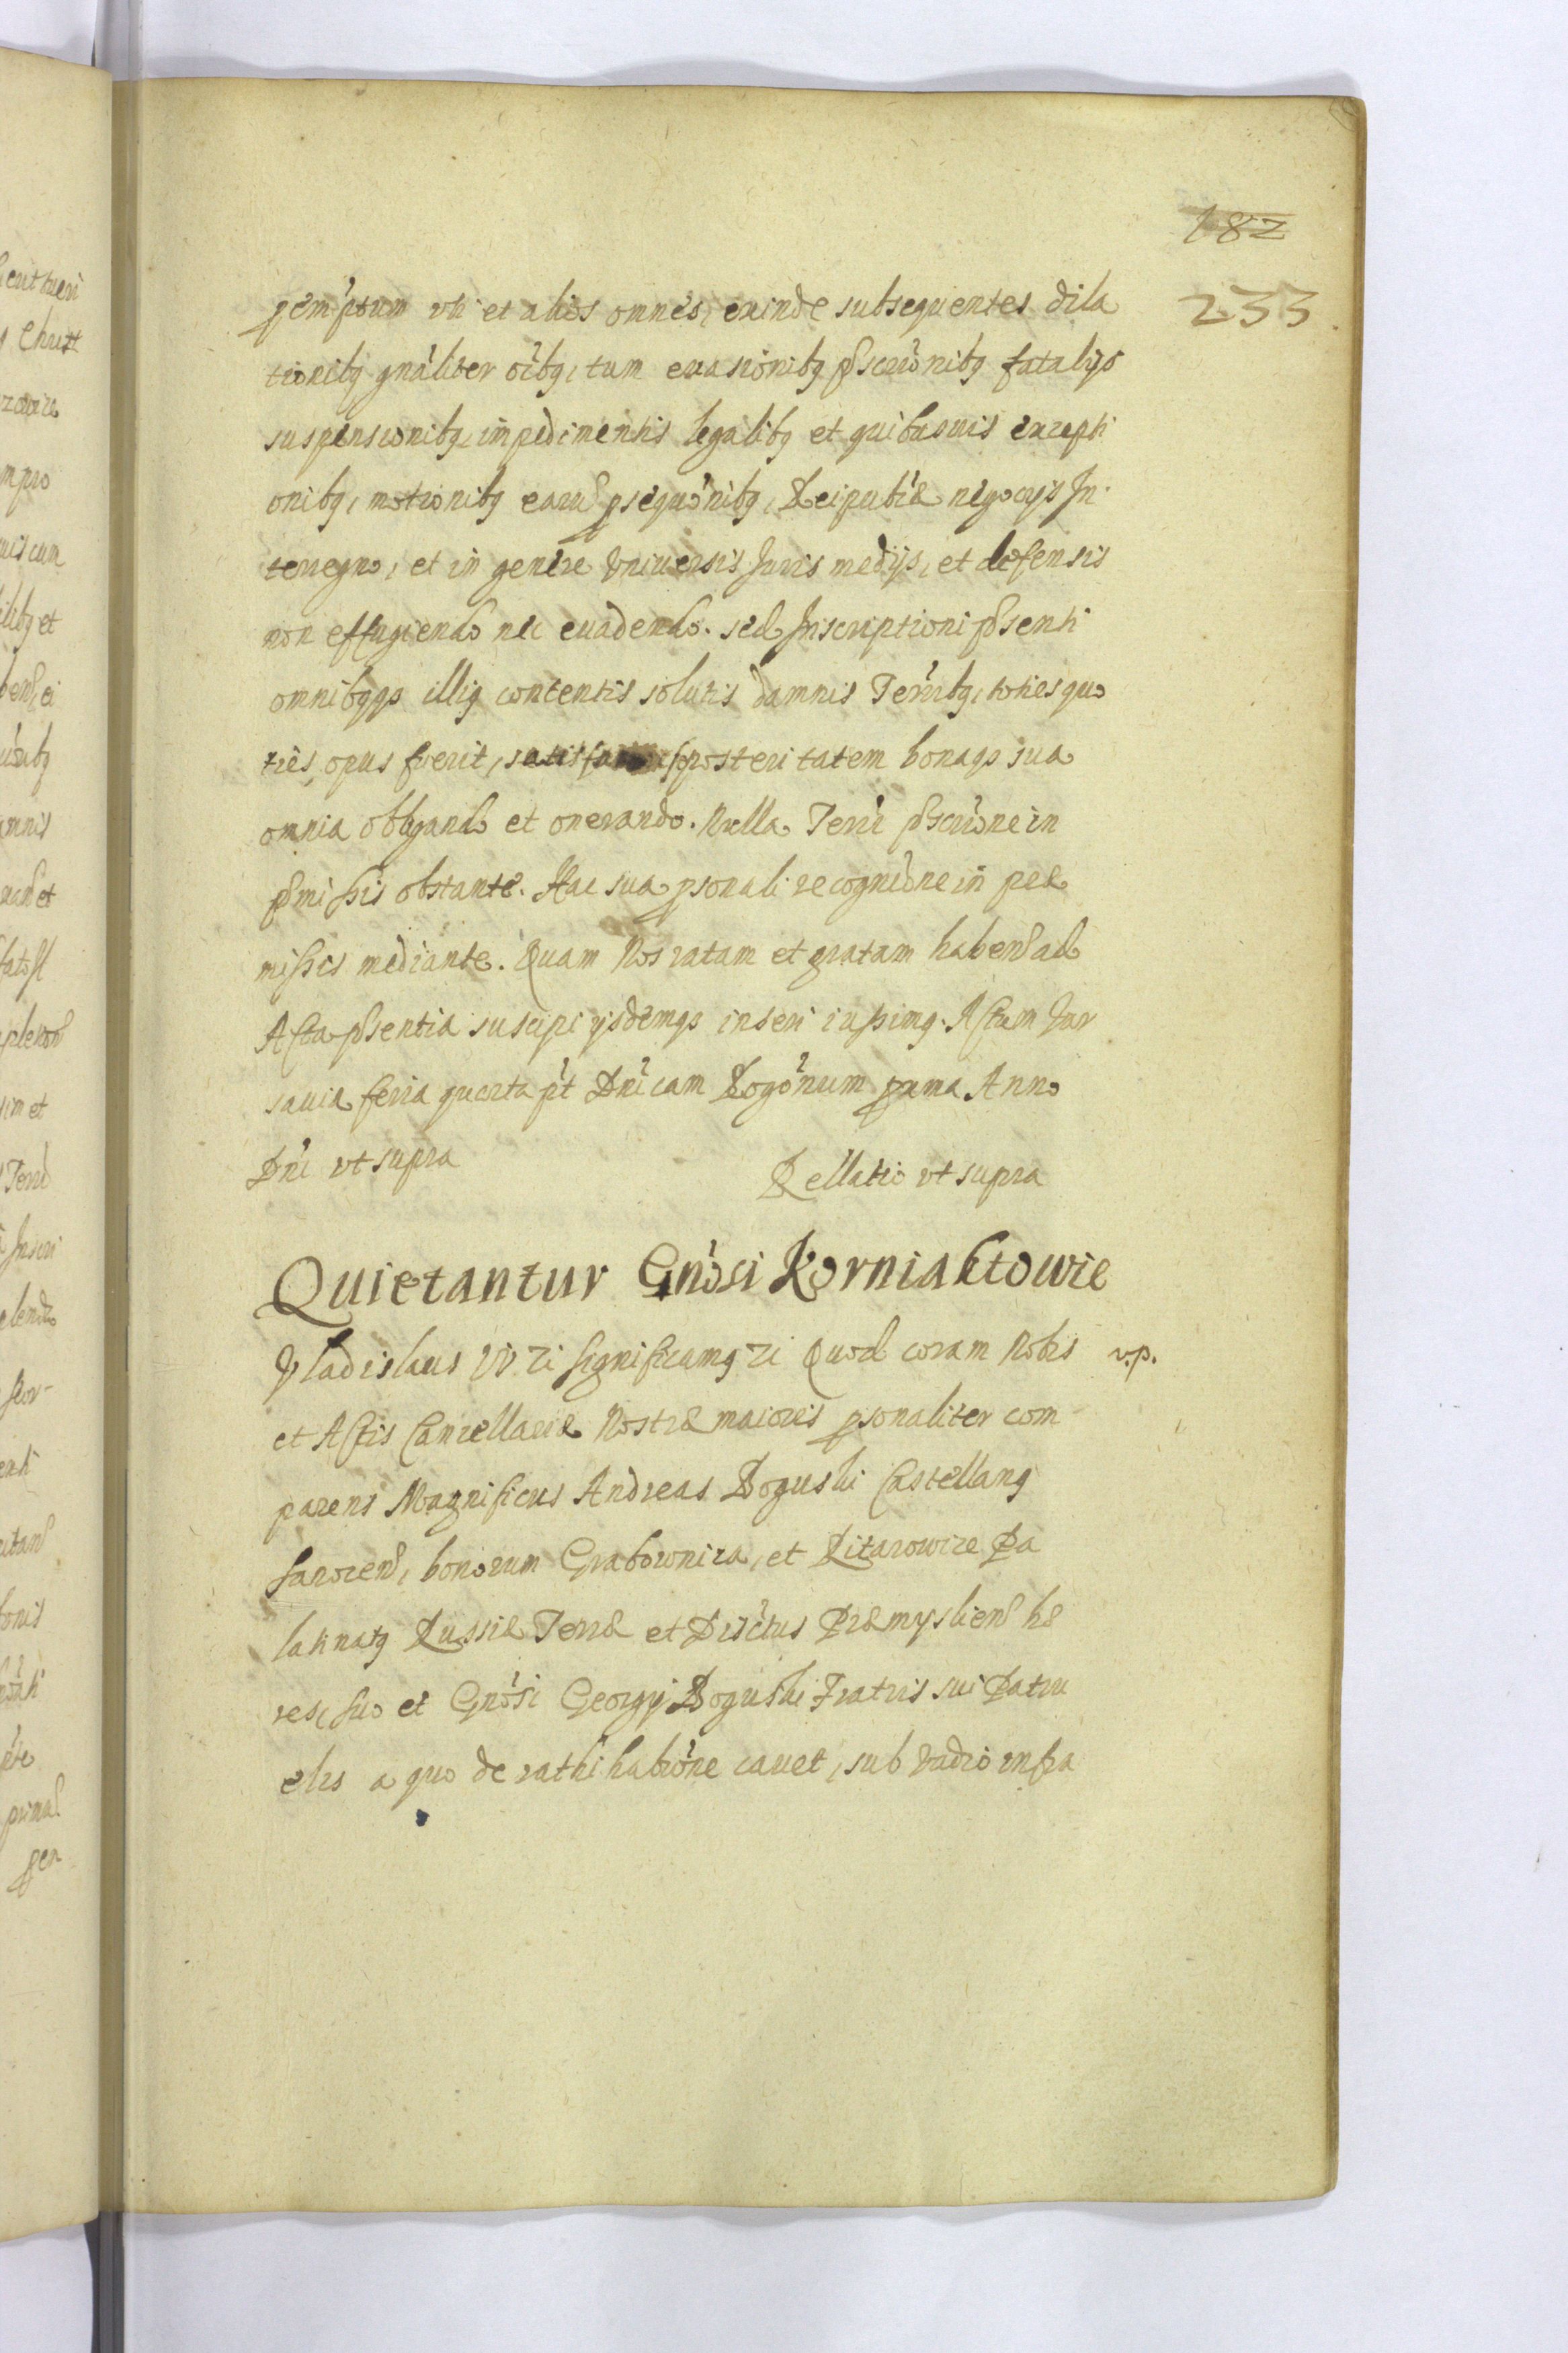 182
233
p̱emptum vti et alios omnes, exinde subsequentes dila
tionibꝫ gnāliter oĩbꝫ, tum euasionibꝫ p̃scriõnibꝫ fatalijs
suspensionibꝫ, impedimentis legalibꝫ et quibusuis excepti
onibꝫ, motionibꝫ earũ p̱sequõnibꝫ, Reipubcæ negocijs In
terregno, et in genere Vniuersis Juris medijs, et defensis
non effugiendo nec euadendo. sed Inscriptioni p̃senti
omnibꝫqꝫ illiꝰ contentis solutis damnis Terr̃ibꝫ, toties quo
ties, opus fuerit, posteritatem bonaqꝫ sua
omnia obligando et onerando. Nulla Terr̃i p̃scriõne in
p̃missis obstante. Hac sua p̱sonali recogniõne in præ
missis mediante. Quam Nos ratam et gratam habenđ ad
Acta p̃sentia suscipi ijsdemqꝫ inseri iussimꝰ. Actum Var
sauiæ feria quarta p̃t Dñicam Rogõnum p̱xima Anno
Dñi vt supra
Rellatio vt supra
Quietantur Gnõsi Korniaktowie
Vladislaus IV ꝛc significamꝰ ꝛc Quod coram Nobis
v.p.
et Actis Cancellariæ Nostræ maioris p̱sonaliter com
parens Magnificus Andreas Boguski Castellanꝰ
bonorum Grabownica, et Litarowice Pa
latinatꝰ Russiæ Terræ et Disctus Præmyslienđ hæ
res, suo et Gnõsi Georgij Boguski Fratris sui Patru
elis a quo de rathihabiõne cauet, sub Vadio infra